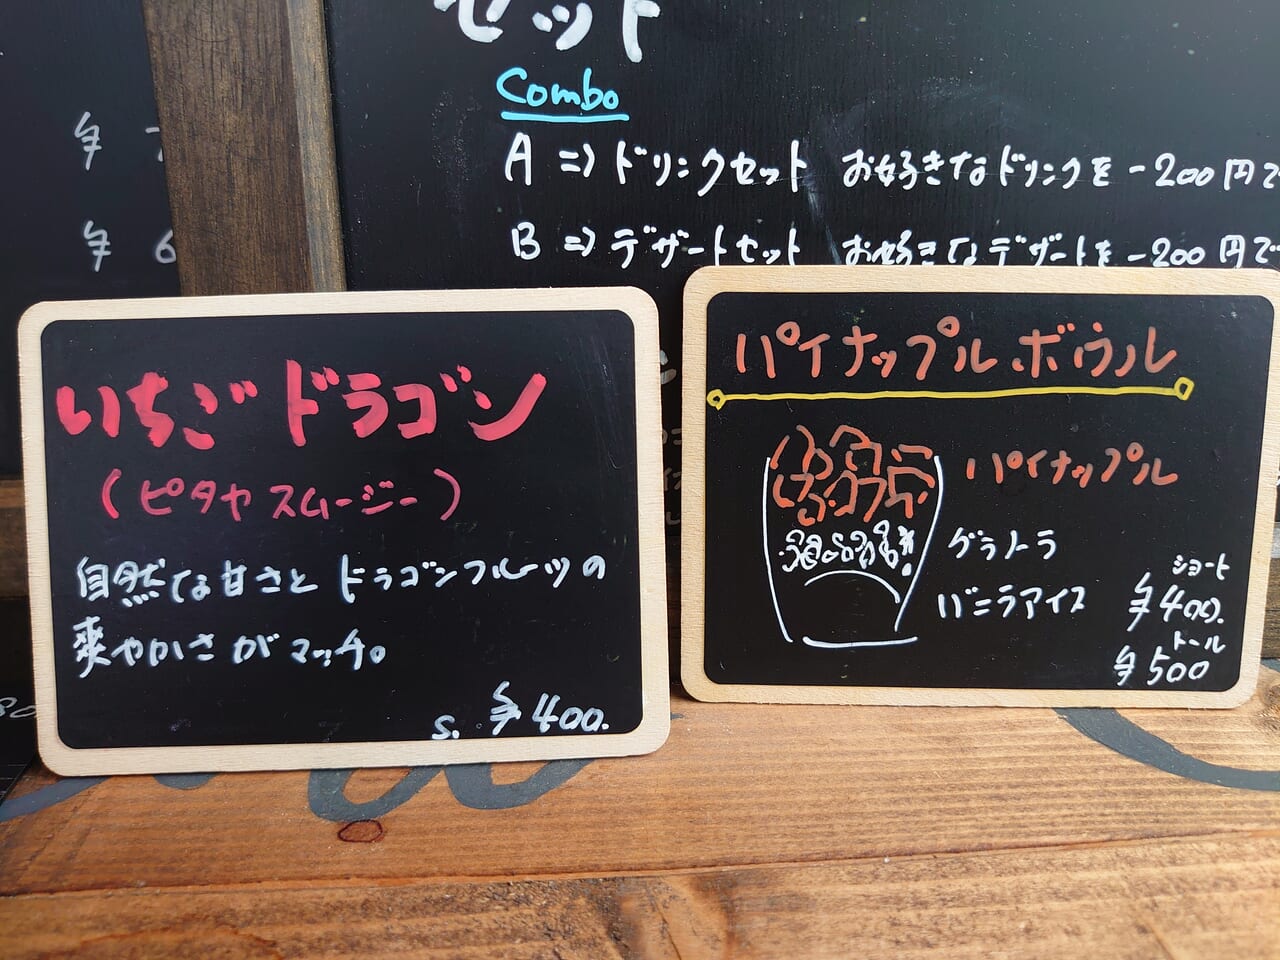 セット
Combo
A ⇒ ドリンクセット お好きなドリンクを -200円で
B ⇒ デザートセット お好きなデザートを -200円で
いちごドラゴン
(ピタヤスムージー)
自然な甘さとドラゴンフルーツの
爽やかさがマッチ。
S. ¥400.
パイナップルボウル
パイナップル
グラノーラ
バニラアイス
ショート
¥400.
トール
¥500